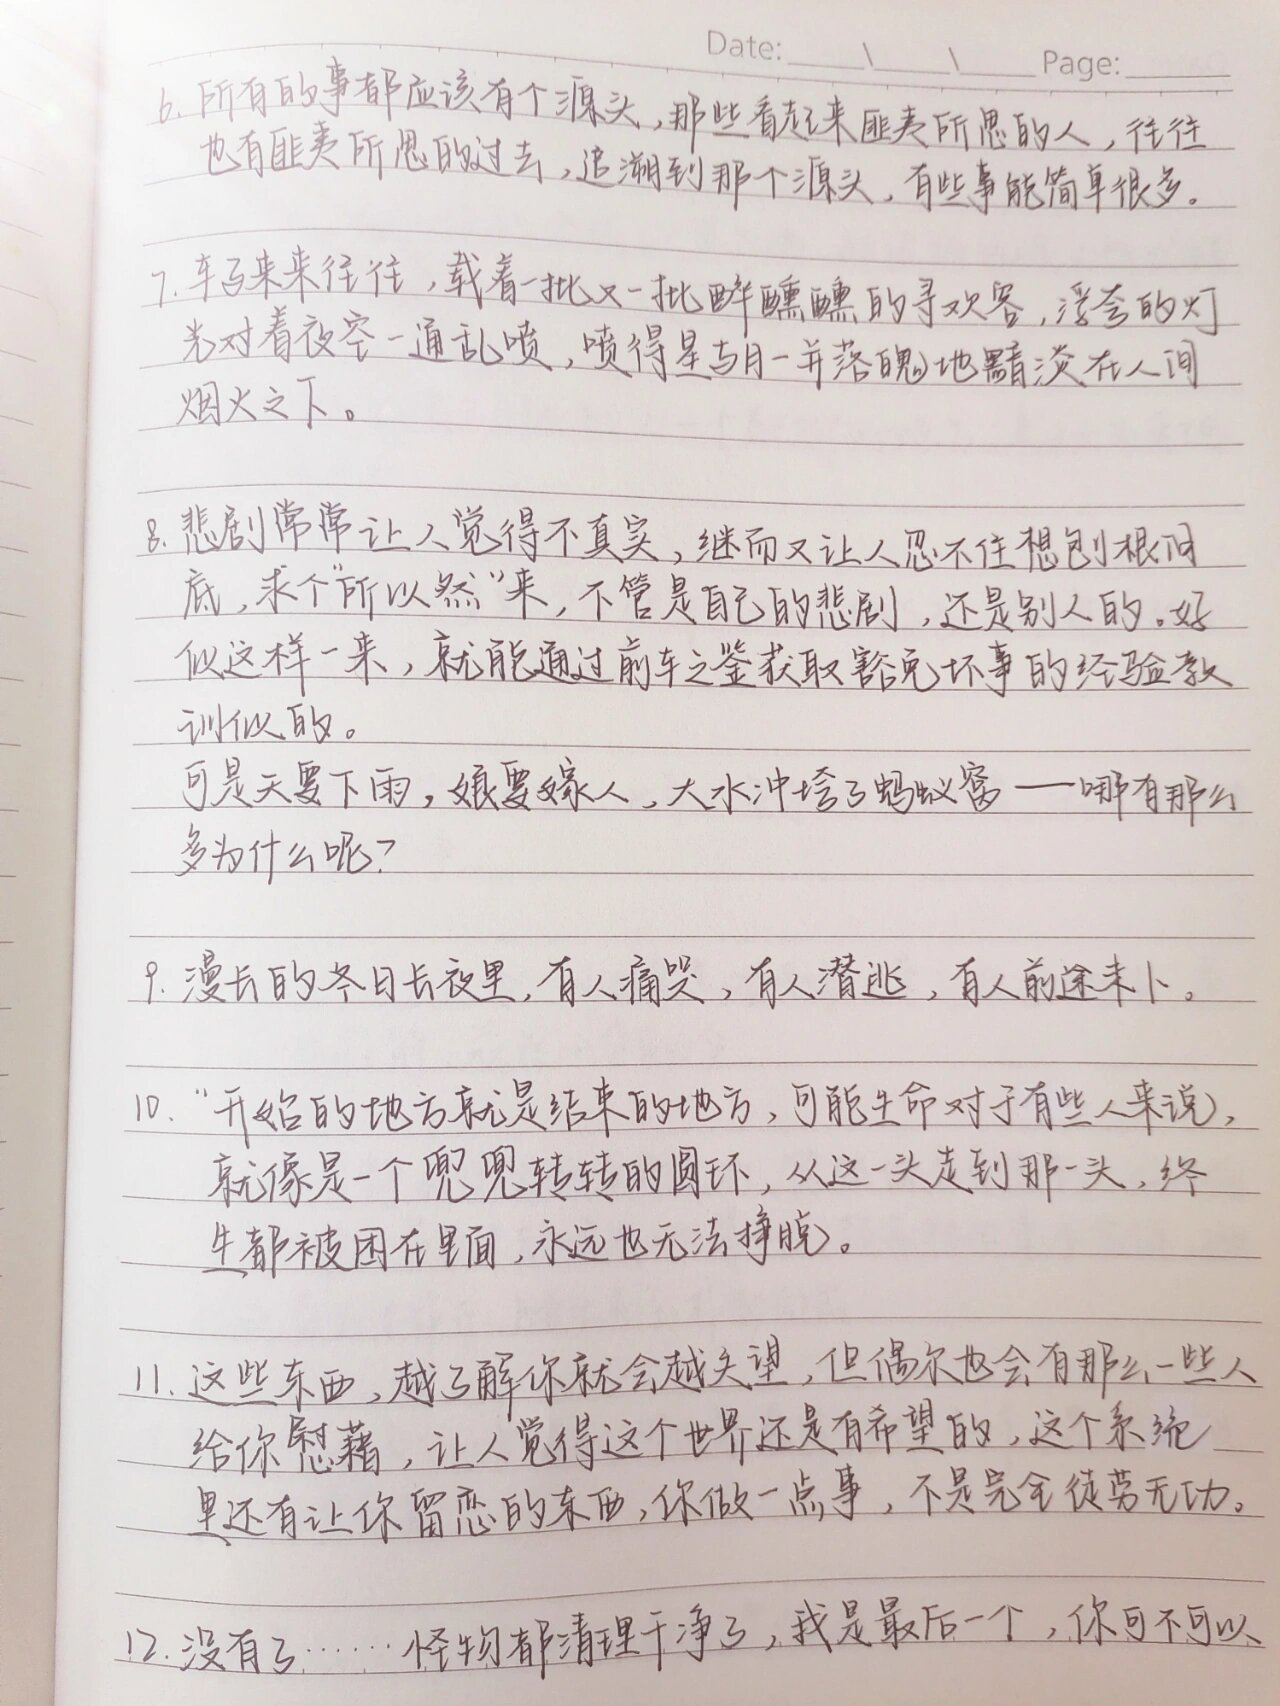 Date: \ \ Page:
6. 所有的事都应该有个源头，那些看起来匪夷所思的人，往往
也有匪夷所思的过去，追溯到那个源头，有些事能简单很多。
7. 车马来来往往，载着一批又一批醉醺醺的寻欢客，浮夸的灯
光对着夜空一通乱喷，喷得星与月一并落魄地黯淡在人间
烟火之下。
8. 悲剧常常让人觉得不真实，继而又让人忍不住想刨根问
底，求个“所以然”来，不管是自己的悲剧，还是别人的。好
似这样一来，就能通过前车之鉴获取豁免坏事的经验教
训似的。
可是天要下雨，娘要嫁人，大水冲垮了蚂蚁窝——哪有那么
多为什么呢？
9. 漫长的冬日长夜里，有人痛哭，有人潜逃，有人前途未卜。
10. “开始的地方就是结束的地方，可能生命对于有些人来说，
就像是一个兜兜转转的圆环，从这一头走到那一头，终
生都被困在里面，永远也无法挣脱。
11. 这些东西，越了解你就会越失望，但偶尔也会有那么一些人
给你慰藉，让人觉得这个世界还是有希望的，这个系统
里还有让你留恋的东西，你做一点事，不是完全徒劳无功。
12. 没有了……怪物都清理干净了，我是最后一个，你可不可以